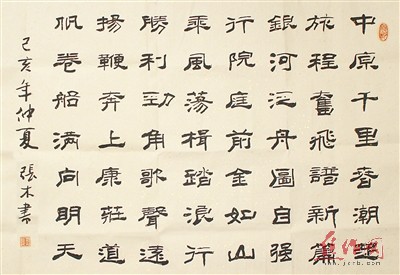 中原千里春潮
旅程奮飛譜新篇
銀河泛舟圖自强
行院庭前金如山
乘風蕩楫踏浪行
勝利勁角歌聲遠
揚鞭奔上康莊道
帆卷船满向明天
己亥年仲夏 張木書
www.jcrb.com